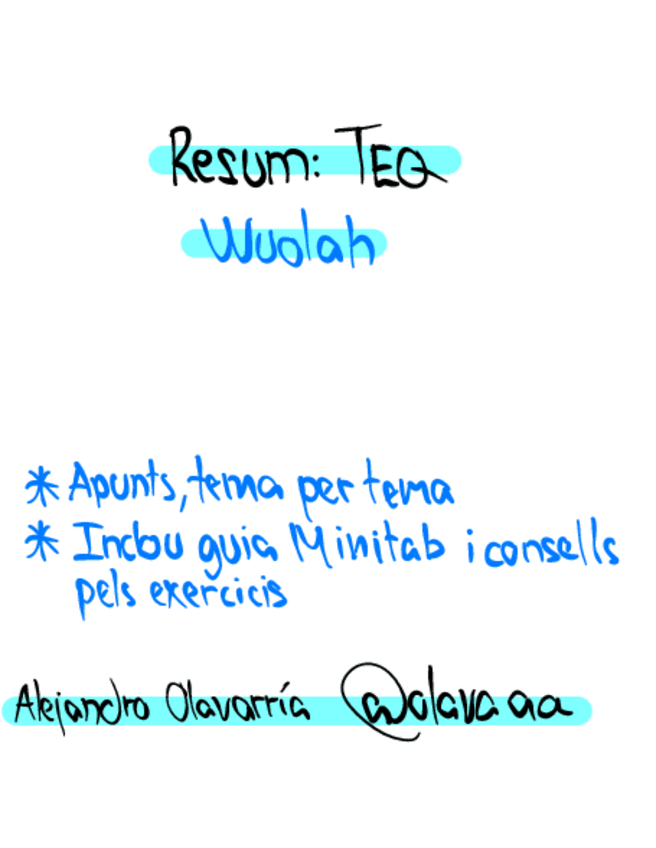 Resum: TEQ
Wuolah
* Apunts, tema per tema
* Inclou guia Minitab i consells
pels exercicis
Alejandro Olavarría @olavaaa